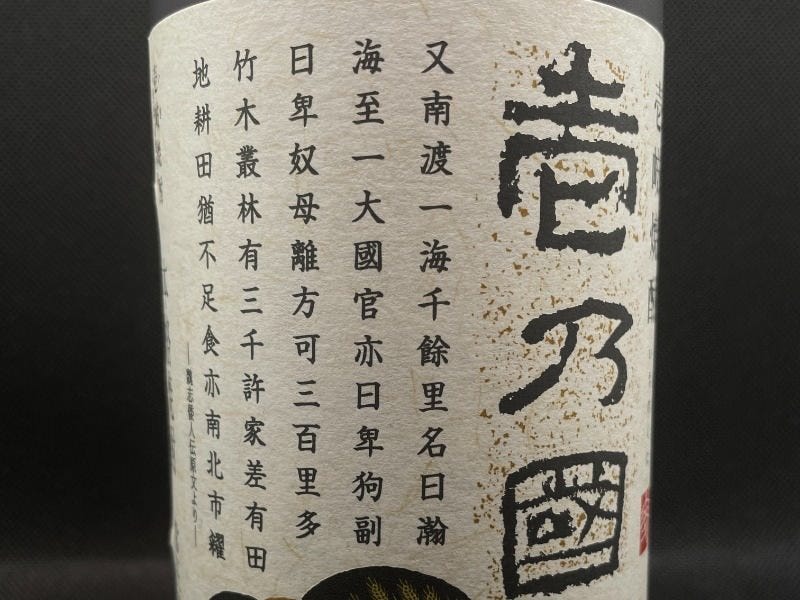 壱乃国
又南渡一海千餘里名曰瀚
海至一大國官亦曰卑狗副
曰卑奴母離方可三百里多
竹木叢林有三千許家差有田
地耕田猶不足食亦南北市糴
―魏志倭人伝原文より―